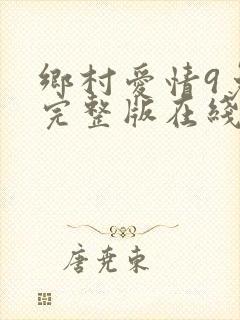 鄉村愛情9
完整版在綫
唐尭東